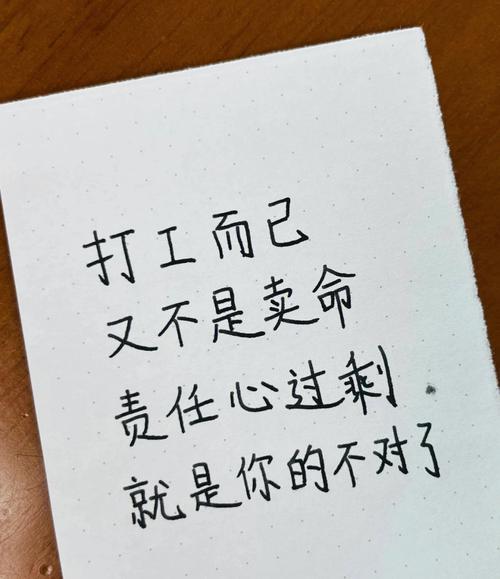 打工而己
又不是卖命
责任心过剩
就是你的不对了